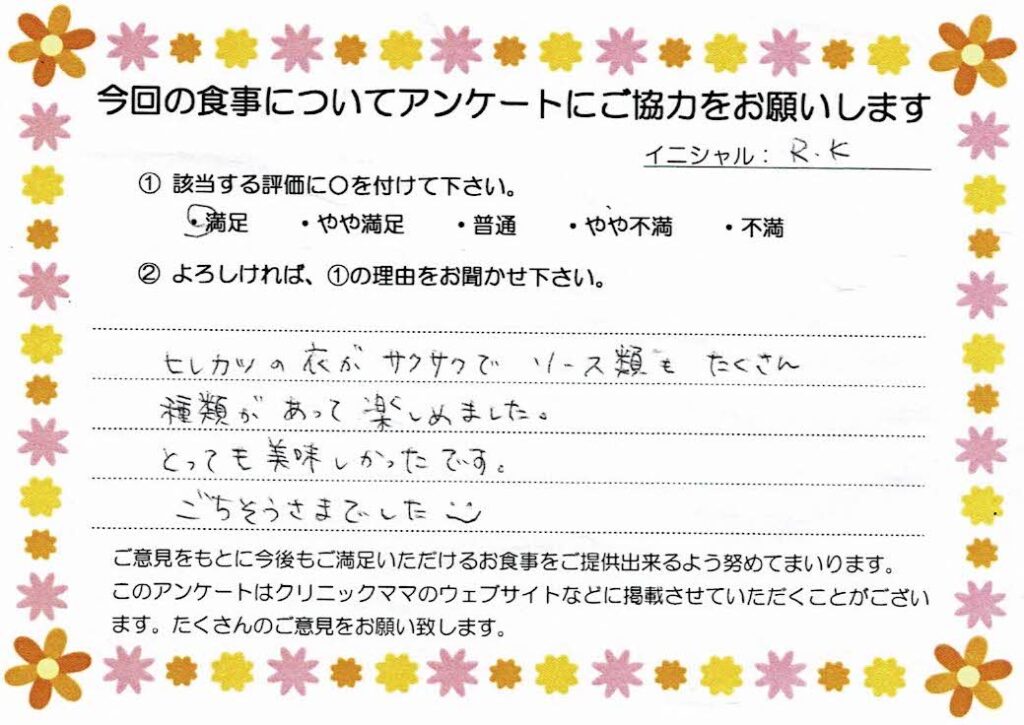 今回の食事についてアンケートにご協力をお願いします
イニシャル： R.K
① 該当する評価に〇を付けて下さい。
・満足 ・やや満足 ・普通 ・やや不満 ・不満
② よろしければ、①の理由をお聞かせ下さい。
ヒレカツの衣がサクサクで ソース類も たくさん
種類があって楽しめました。
とっても美味しかったです。
ごちそうさまでした
ご意見をもとに今後もご満足いただけるお食事をご提供出来るよう努めてまいります。
このアンケートはクリニックママのウェブサイトなどに掲載させていただくことがござい
ます。たくさんのご意見をお願い致します。